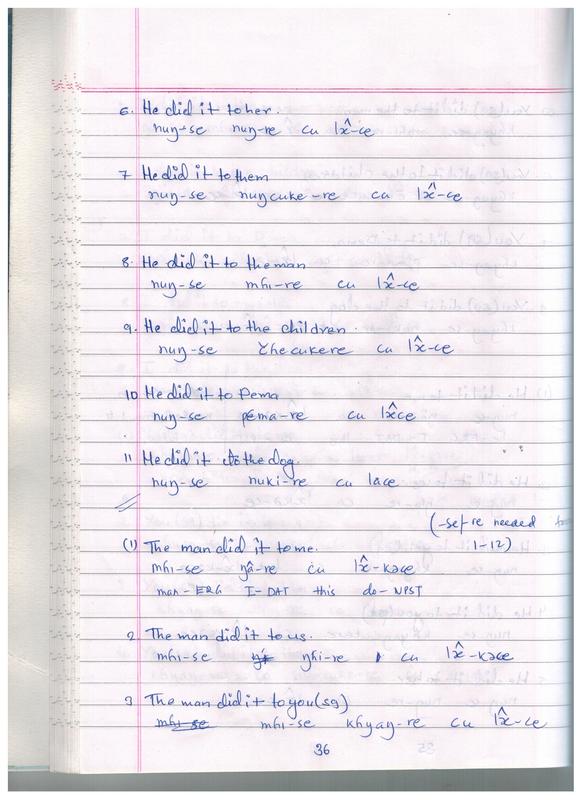 6. He did it to her.
nuŋ-se nuŋ-re cu lx̂-ce
7 He did it to them
nuŋ-se nuŋcuke-re cu lx̂-ce
8. He did it to the man
nuŋ-se mhi-re cu lx̂-ce
9. He did it to the children.
nuŋ-se cu lx̂-ce
10 He did it to Pema
nuŋ-se pema-re cu lx̂ce
11 He did it to the dog.
nuŋ-se nuki-re cu lace
(-se/-re needed
1-12)
(1) The man did it to me.
mhi-se ŋâ-re cu lx̂-kəce
man-ERG I-DAT this do-NPST
2. The man did it to us.
mhi-se ŋhi-re cu lx̂-kəce
3 The man did it to you (sg)
mhi-se mhi-se khyaŋ-re cu lx̂-ce
36